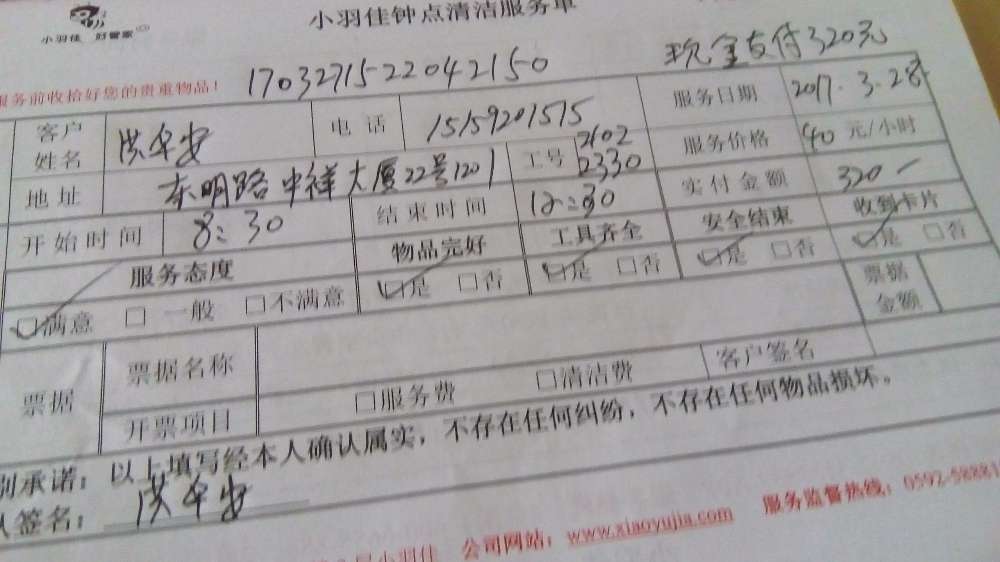 小羽佳 好管家
小羽佳钟点清洁服务单
服务前收拾好您的贵重物品！ 1703271522042150 现金支付320元
客户姓名 洪卒安 电话 15159201515 服务日期 2017.3.28
地址 东明路中祥大厦22号1201 工号 2102 2330 服务价格 40 元/小时
开始时间 8:30 结束时间 12:30 实付金额 320
服务态度 物品完好 工具齐全 安全结束 收到卡片
☑满意 □一般 □不满意 ☑是 □否 ☑是 □否 ☑是 □否 ☑是 □否
票据 票据名称 票据金额
开票项目 □服务费 □清洁费 客户签名
别承诺：以上填写经本人确认属实，不存在任何纠纷，不存在任何物品损坏。
人签名：洪卒安
小羽佳 公司网站：www.xiaoyujia.com 服务监督热线：0592-5888